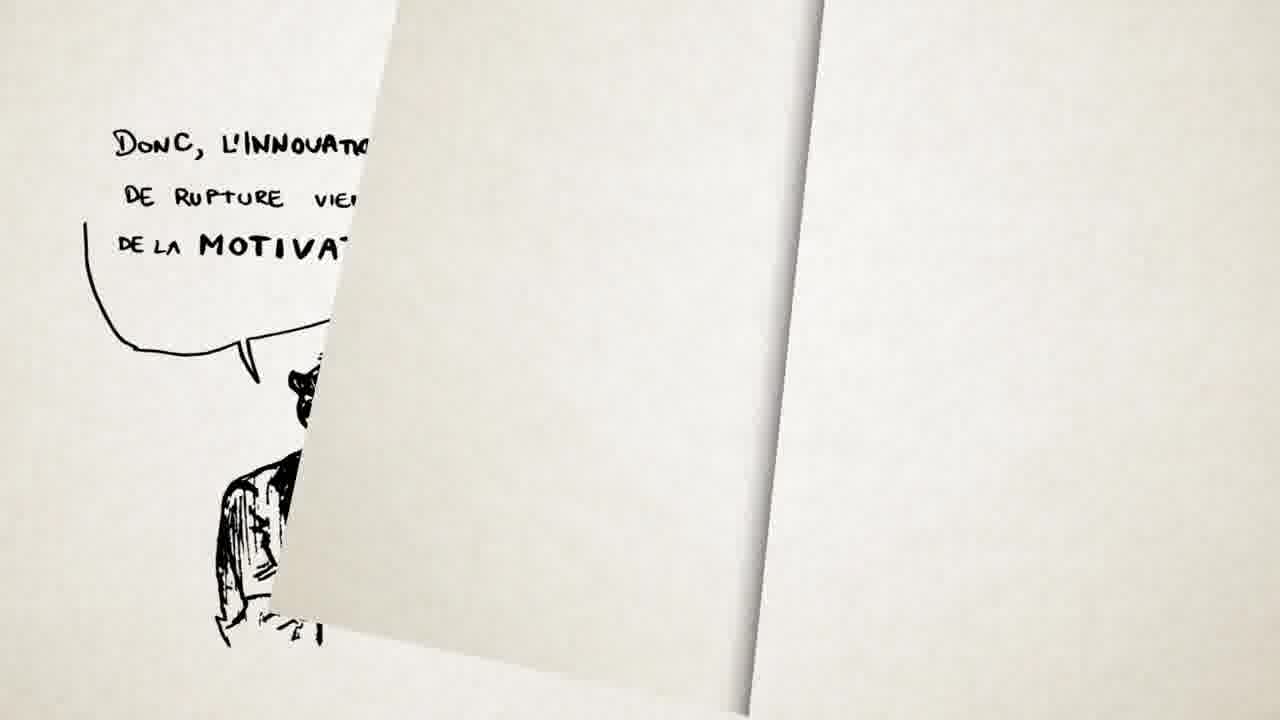 DONC, L'INNOVATIO
DE RUPTURE VIE
DE LA MOTIVAT